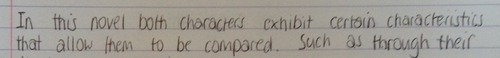 In this novel both characters exhibit certain characteristics
that allow them to be compared. Such as through their